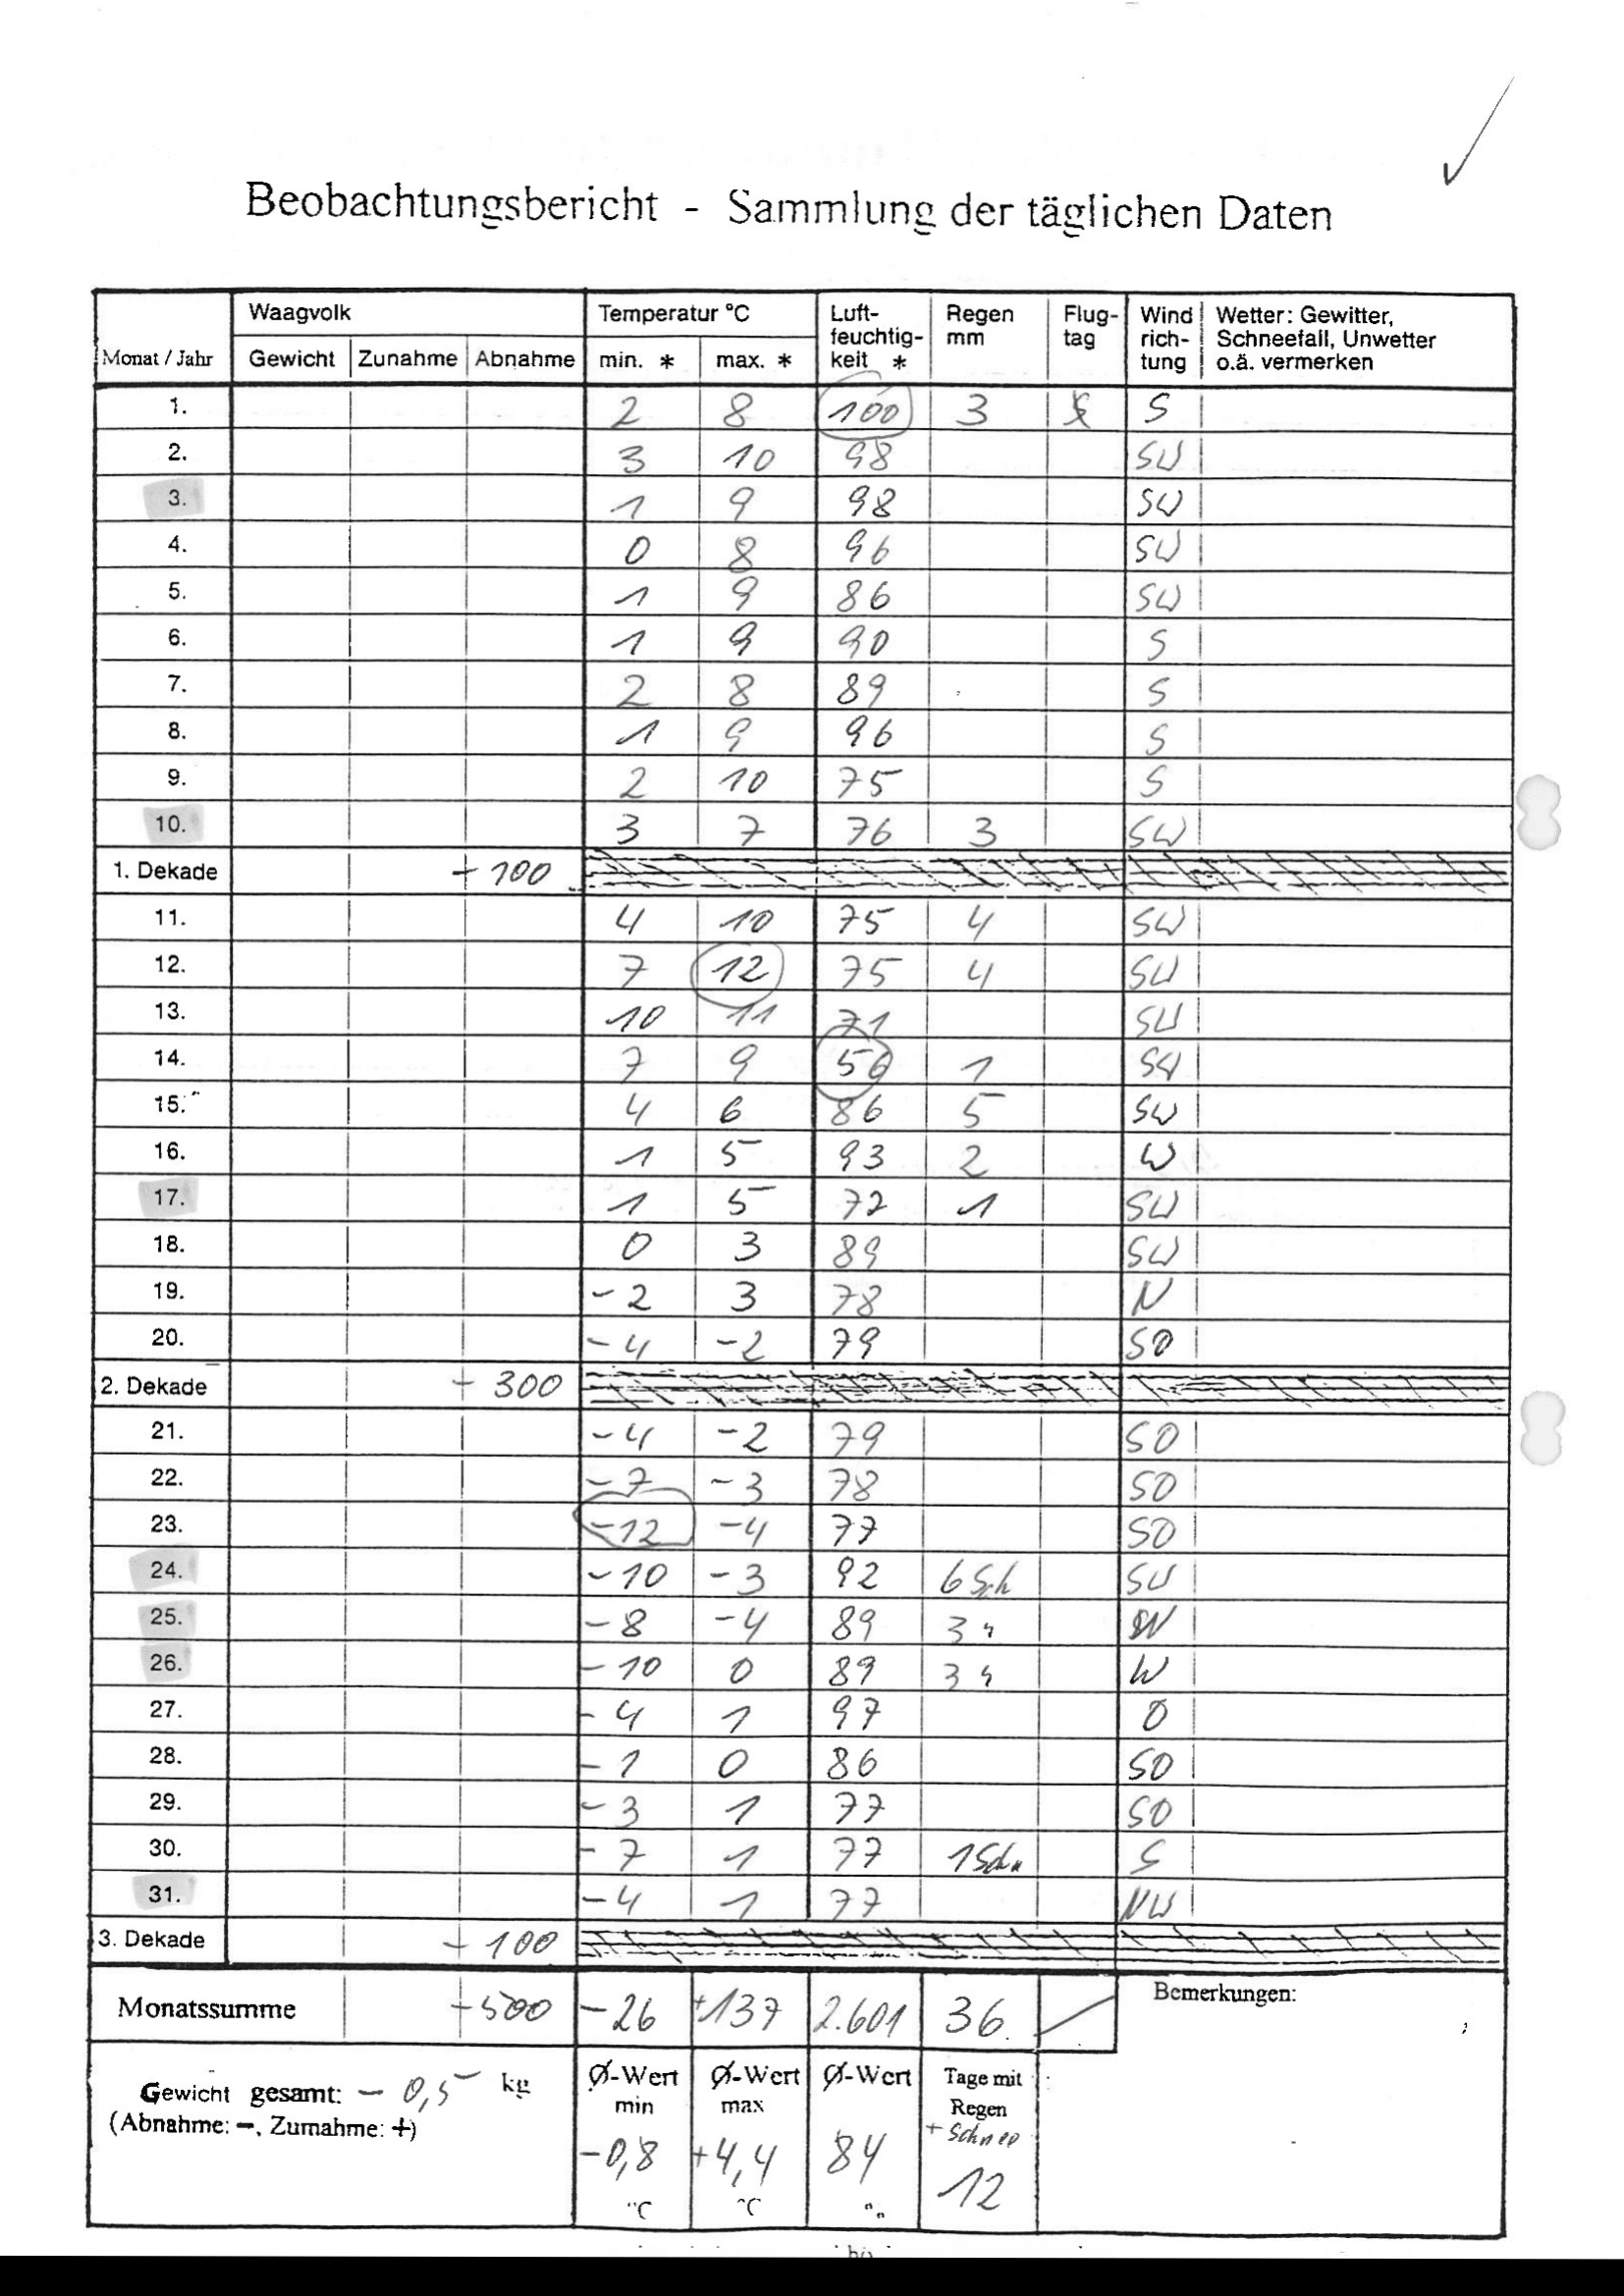 Beobachtungsbericht - Sammlung der täglichen Daten
Monat / Jahr Waagvolk Temperatur °C Luft-feuchtig-keit * Regen mm Flug-tag Wind rich-tung Wetter: Gewitter, Schneefall, Unwetter o.ä. vermerken
Gewicht Zunahme Abnahme min. * max. *
1. 2 8 100 3 S
2. 3 10 98 SW
3. 1 9 98 SW
4. 0 8 96 SW
5. 1 9 86 SW
6. 1 9 90 S
7. 2 8 89 S
8. 1 9 96 S
9. 2 10 75 S
10. 3 7 76 3 SW
1. Dekade - 100
11. 4 10 75 4 SW
12. 7 12 75 4 SW
13. 10 11 71 SW
14. 7 9 56 1 SW
15. 4 6 86 5 SW
16. 1 5 93 2 W
17. 1 5 72 1 SW
18. 0 3 89 SW
19. -2 3 78 N
20. -4 -2 79 SO
2. Dekade - 300
21. -4 -2 79 SO
22. -7 -3 78 SO
23. -12 -4 77 SO
24. -10 -3 92 6 Sch SW
25. -8 -4 89 3 " W
26. -10 0 89 3 " W
27. -4 1 97 O
28. -1 0 86 SO
29. -3 1 77 SO
30. -7 1 77 1 Sch. S
31. -4 1 77 NW
3. Dekade - 100
Monatssumme -500 -26 +137 2.601 36 Bemerkungen:
Gewicht gesamt: - 0,5 kg
(Abnahme: -, Zumahme: +)
Ø-Wert min -0,8 °C
Ø-Wert max +4,4 °C
Ø-Wert 84
Tage mit Regen + Schnee 12